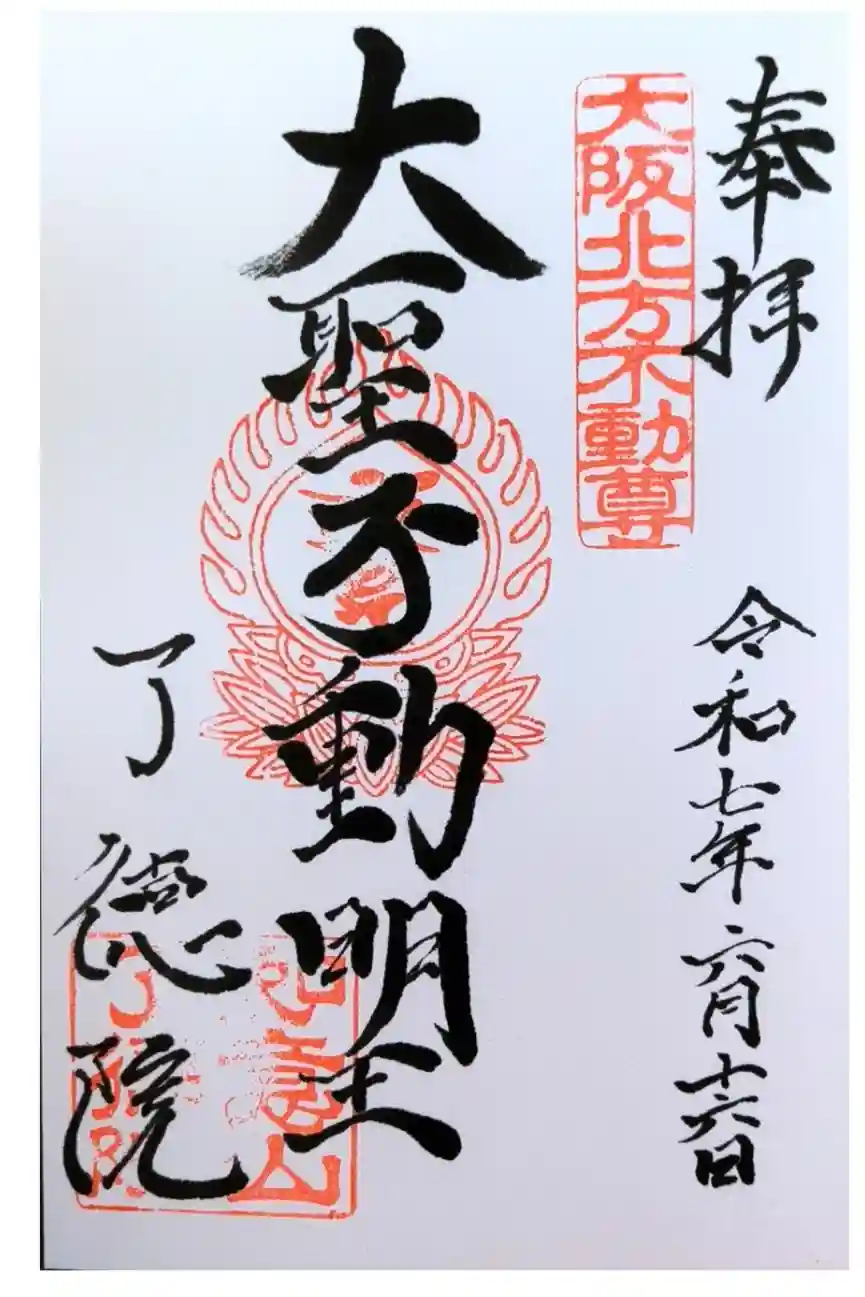 奉拝
大阪北方不動尊
令和七年六月十六日
大聖不動明王
了德院